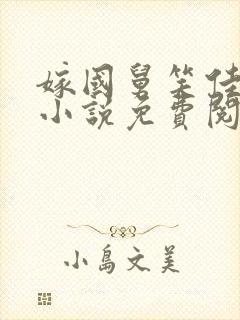 嫁國舅笑佳
小說免費閱
小島文美